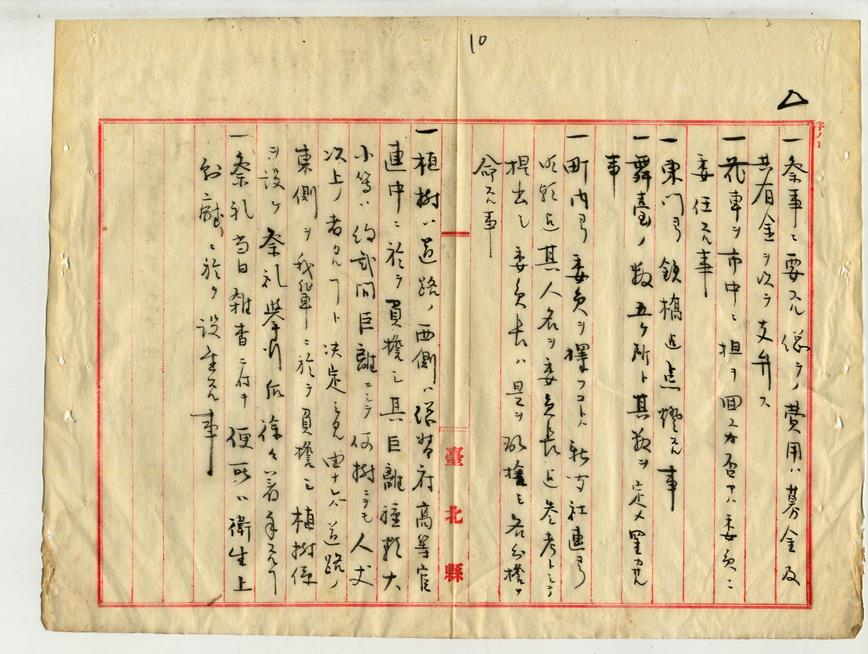 10
一祭事ニ要スル総テノ費用ハ募金及
共有金ヲ以テ支弁ス
一花車ヲ市中ニ担ヲ回ス力否ハ委員ニ
委任スル事
一東門ヨリ鉄橋迄点燈スル事
一舞臺ノ数五ヶ所ト其数ヲ定メ置カル
事
一町内ヨリ委員ヲ擇フコトハ新聞社連ヨリ
迄其人名ヲ委員長迄参考トシテ
提出シ委員長ハ是ヲ取捨シ各分擔ヲ
命スル事
一植樹ハ道路ノ西側ハ総督府高等官
連中ニ於テ負擔シ其巨離種類大
小等ハ約弐間巨離ニシテ何樹ニテモ人丈
次上ノ者タルコトト決定シタル由ナルガ道路ノ
東側ヲ我軰ニ於テ負擔シ植樹係
ヲ設ケ祭礼挙行前徐々ニ着手スル事
一祭礼当日雑沓ニ付キ便所ハ衛生上
ニ於テ設置スル事
臺北縣